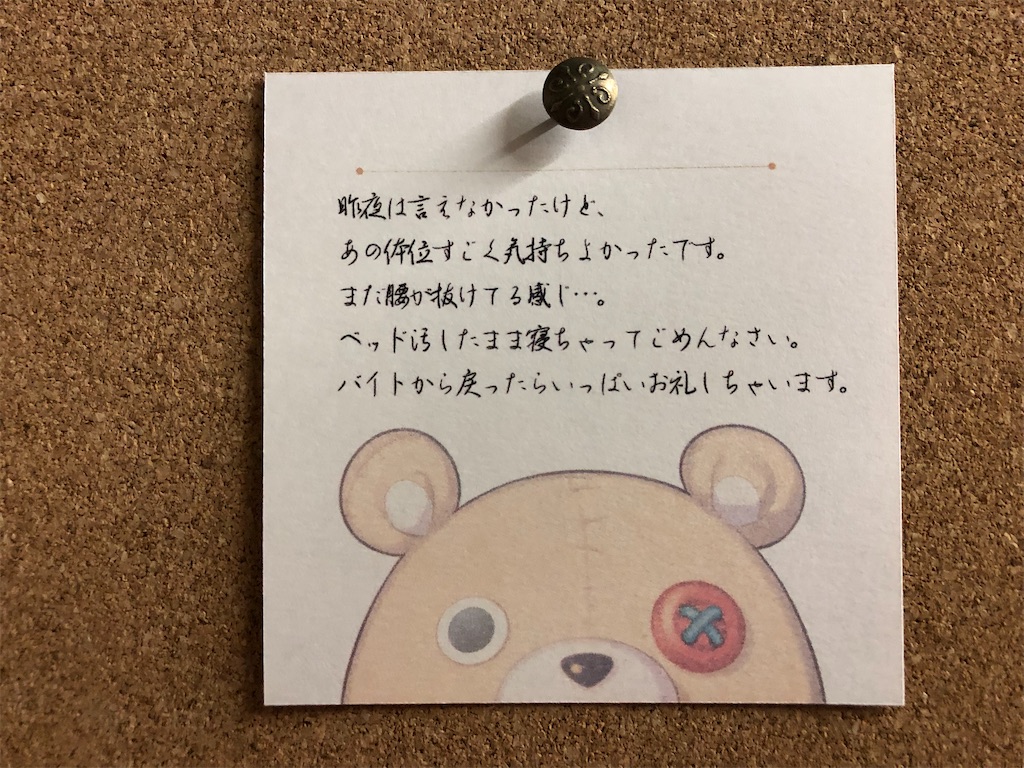 昨夜は言えなかったけど、
あの体位すごく気持ちよかったです。
まだ腰が抜けてる感じ…。
ベッド汚したまま寝ちゃってごめんなさい。
バイトから戻ったらいっぱいお礼しちゃいます。